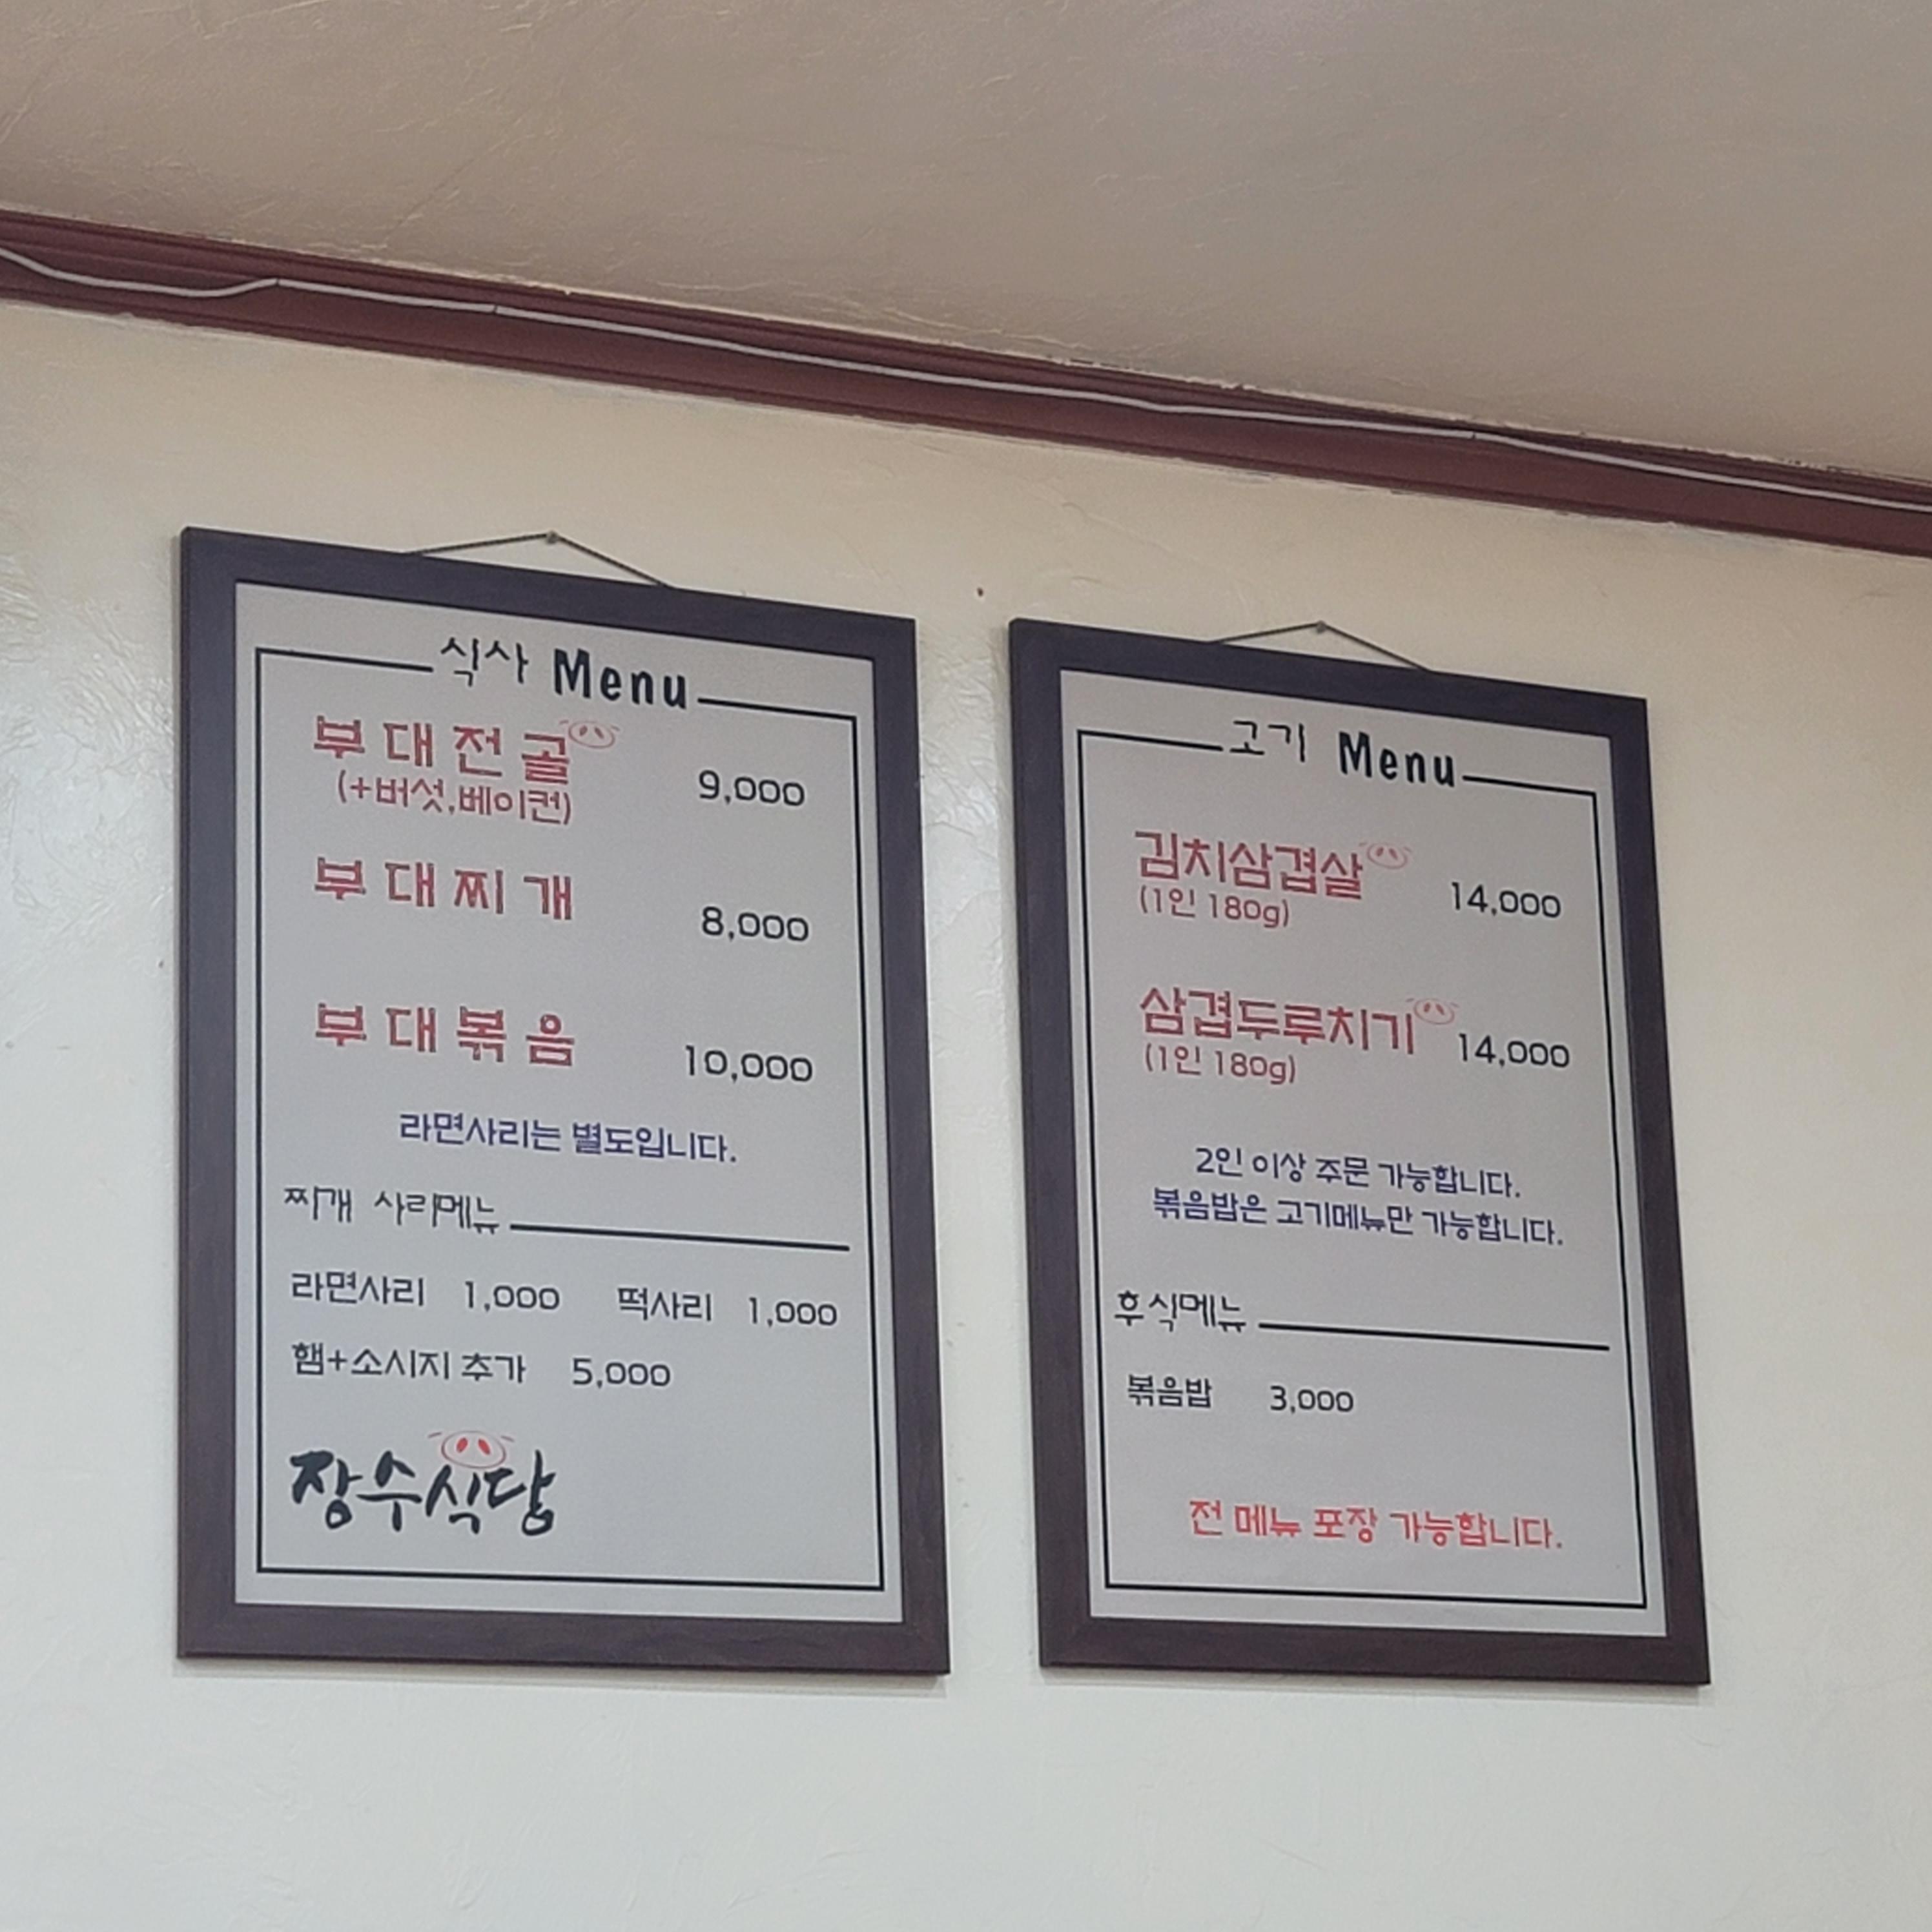 식사 Menu
부대전골 9,000
(+버섯,베이컨)
부대찌개 8,000
부대볶음 10,000
라면사리는 별도입니다.
찌개 사리메뉴
라면사리 1,000 떡사리 1,000
햄+소시지 추가 5,000
장수식당
고기 Menu
김치삼겹살 14,000
(1인 180g)
삼겹두루치기 14,000
(1인 180g)
2인 이상 주문 가능합니다.
볶음밥은 고기메뉴만 가능합니다.
후식메뉴
볶음밥 3,000
전 메뉴 포장 가능합니다.